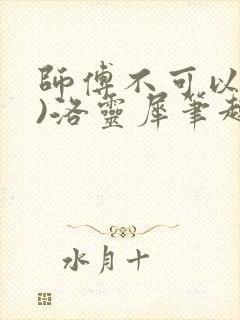 師傅不可以
)洛靈犀筆趣
水月十